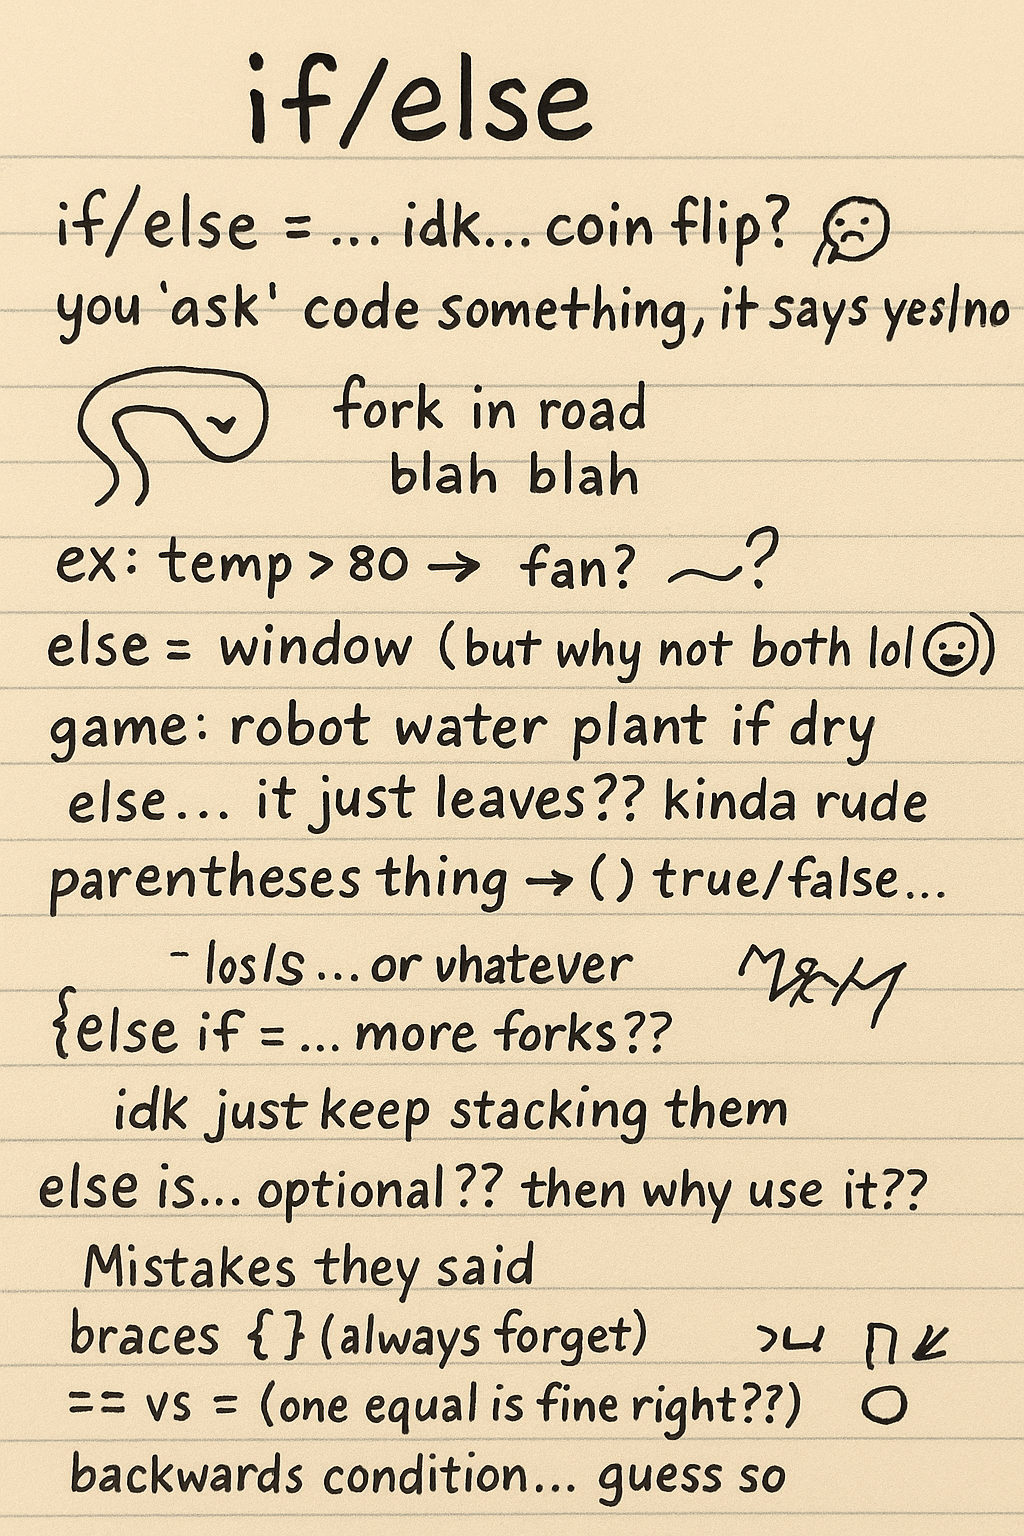 if/else
if/else = ... idk... coin flip?
you 'ask' code something, it says yes/no
fork in road
blah blah
ex: temp > 80 → fan? ~?
else = window (but why not both lol)
game: robot water plant if dry
else... it just leaves?? kinda rude
parentheses thing → () true/false...
- los/s ... or vhatever
{else if = ... more forks??
idk just keep stacking them
else is... optional?? then why use it??
Mistakes they said
braces {} (always forget)
== vs = (one equal is fine right??)
backwards condition... guess so